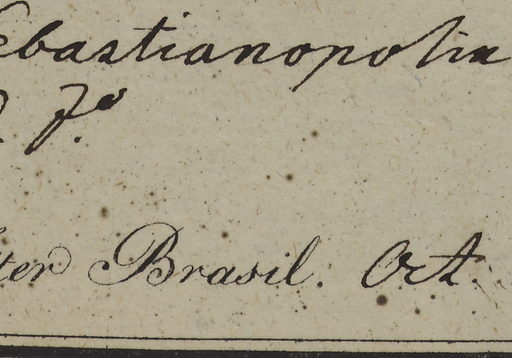 ebastianopolis
Fo.
ter Brasil. Oct.